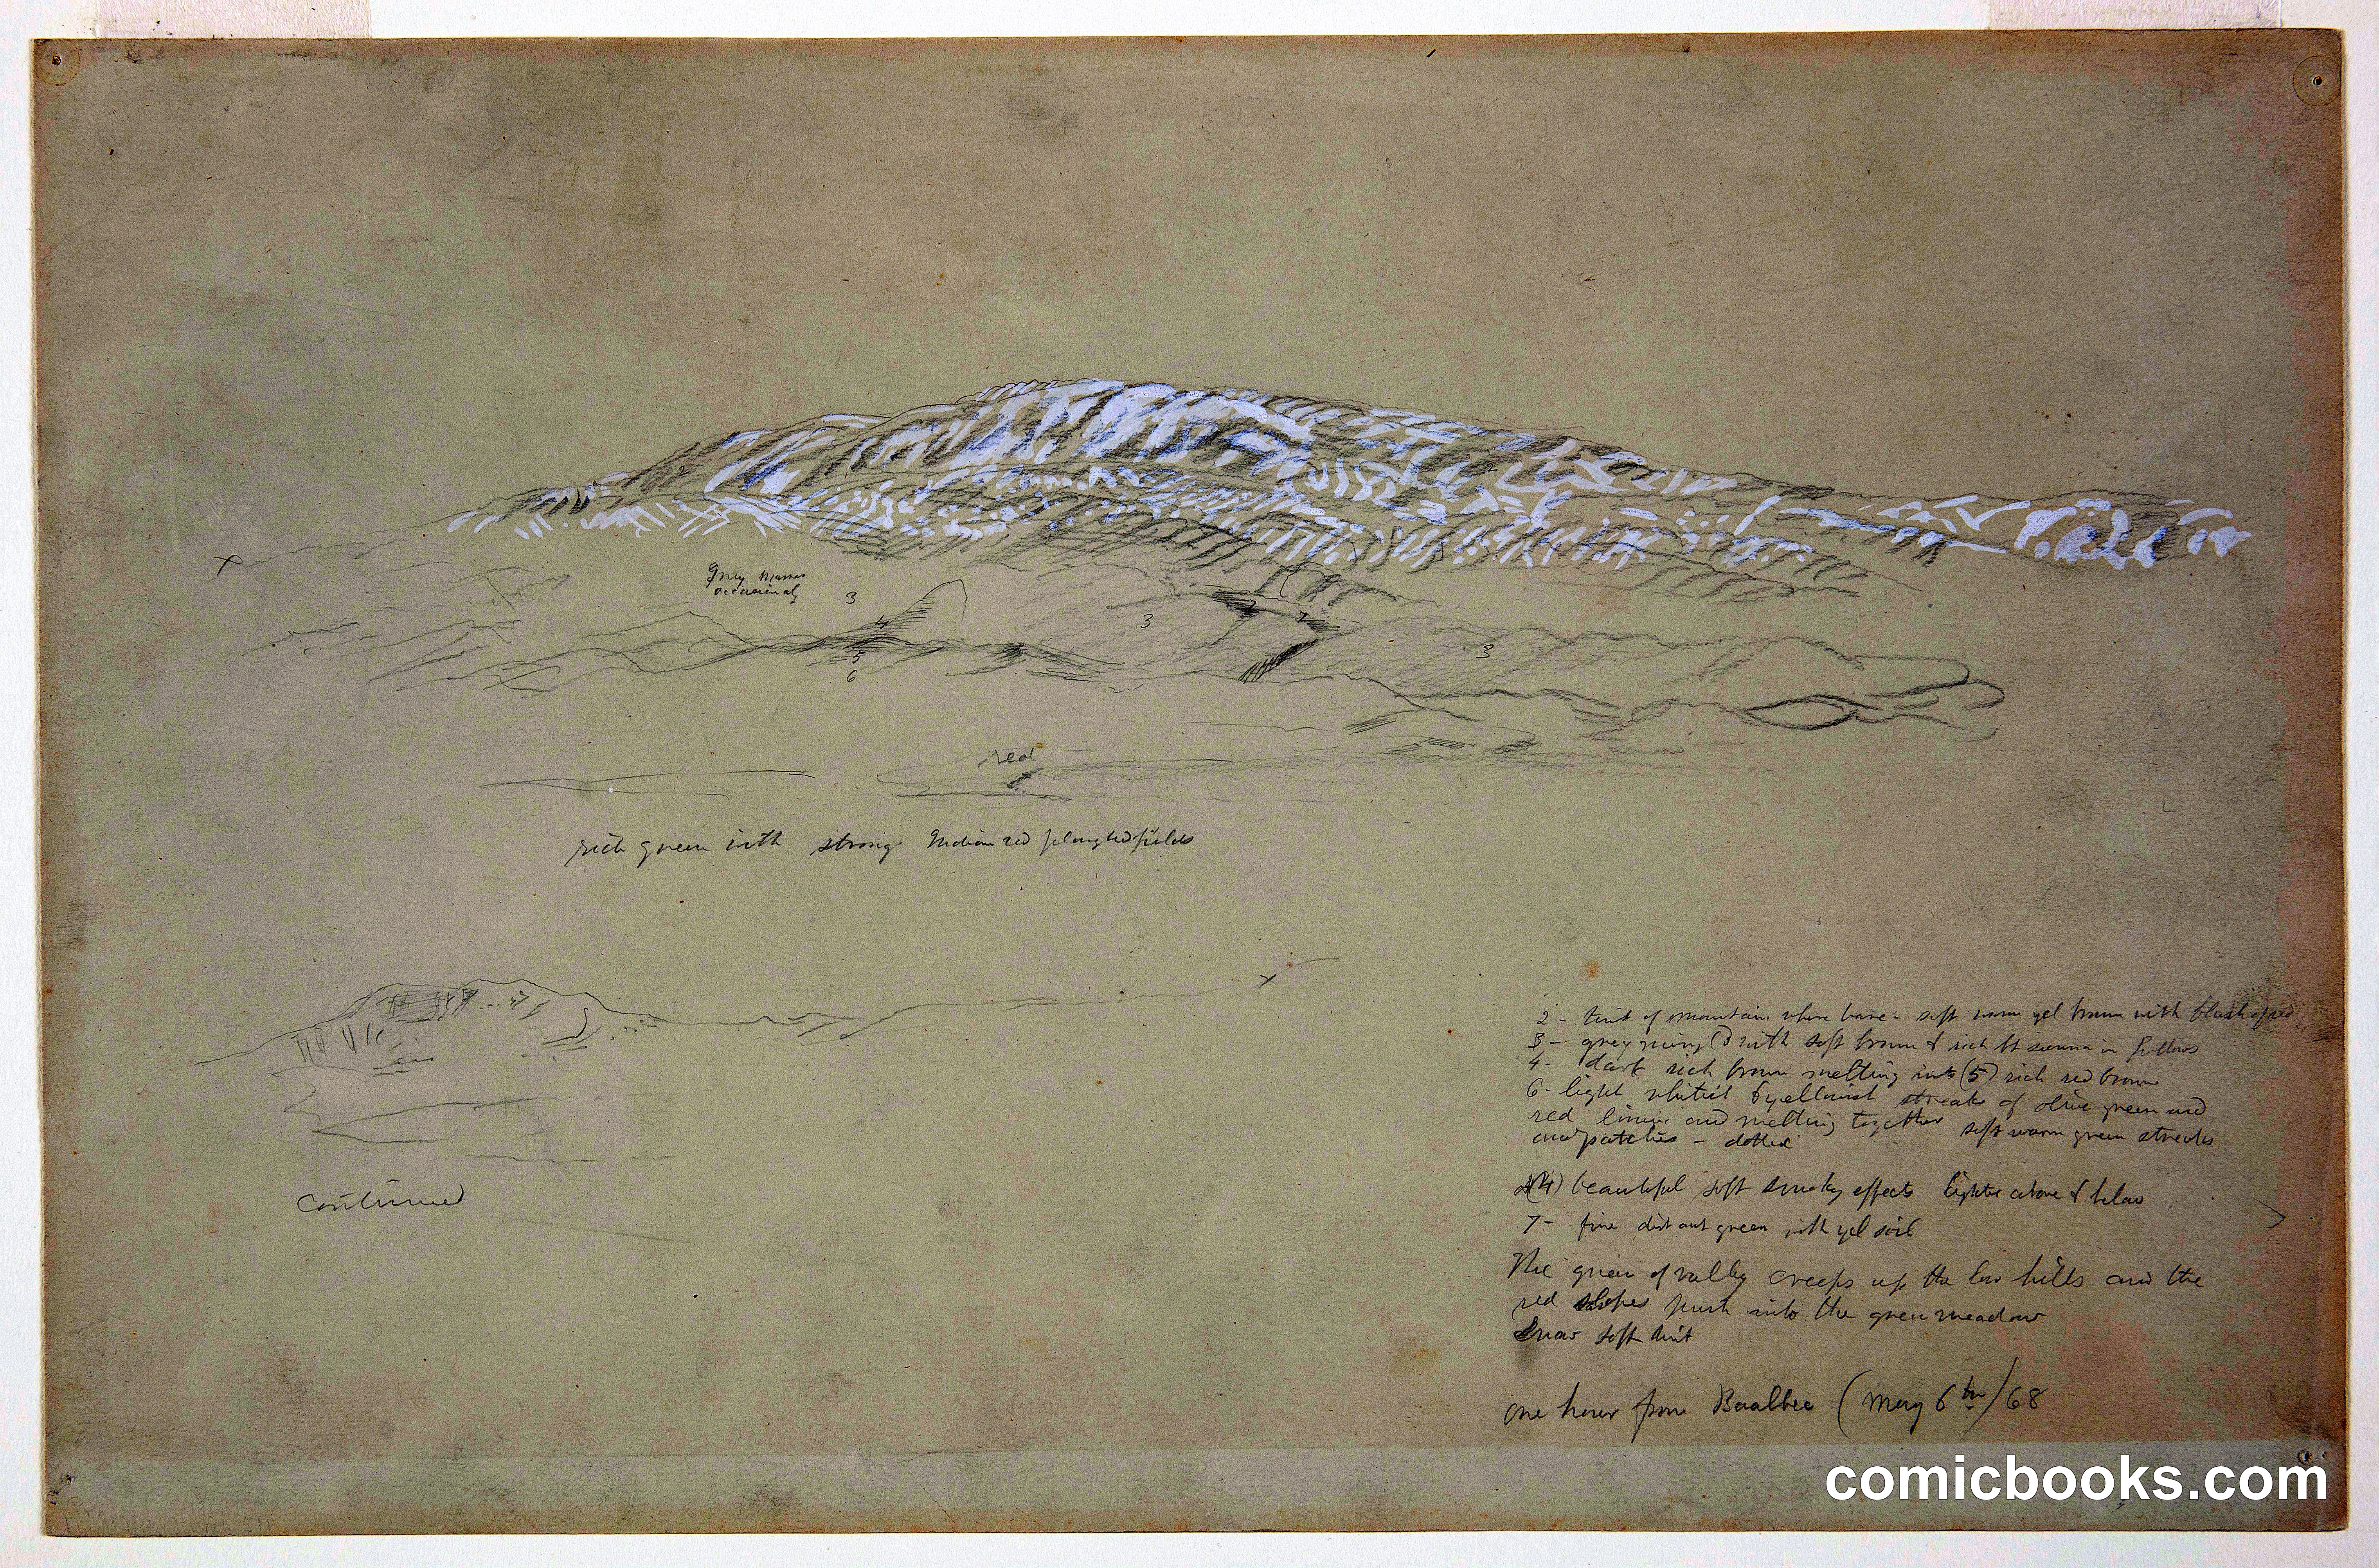 Grey masses
occasionaly
3
4
2
7
3
3
5
6
red
rich green with strong Indian red ploughed fields
2 - tint of mountain where bare - soft warm yel brown with blush of red
3 - grey rising with soft brown & rich lt sienna in hollows
4 - dark rich brown melting into (5) rich red brown
6 - light whitish & yellowish streaks of olive green and
red lines and melting together soft warm green streaks
and patches - dotted
(4) beautiful soft smoky effects lighter above & below
7 - fine distant green with yel soil
continued
The green of valley creeps up the low hills and the
red slopes push into the green meadow
Snow soft tint
One hour from Baalbec (May 6th/68
comicbooks.com